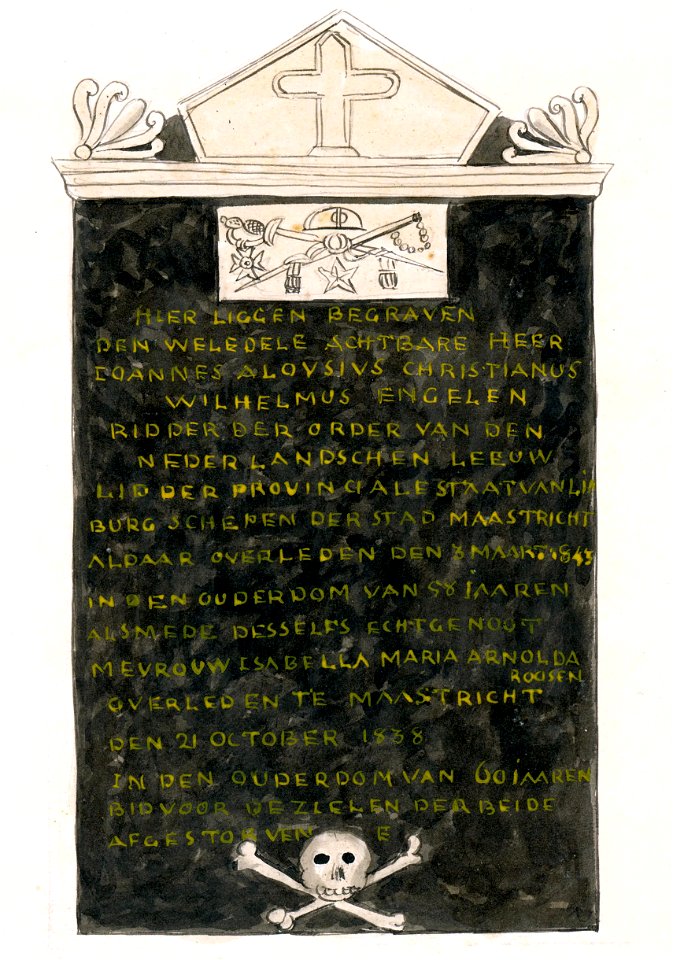 HIER LIGGEN BEGRAVEN
DEN WELEDELE ACHTBARE HEER
IOANNES ALOYSIVS CHRISTIANUS
WILHELMUS ENGELEN
RIDDER DER ORDER VAN DEN
NEDERLANDSCHEN LEEUW
LID DER PROVINCIALE STAAT VAN LIM
BURG SCHEPEN DER STAD MAASTRICHT
ALDAAR OVERLEDEN DEN 8 MAART 1843
IN DEN OUDERDOM VAN 58 IAAREN
ALSMEDE DESSELFS ECHTGENOUT
MEVROUW ISABELLA MARIA ARNOLDA
ROOSEN
OVERLEDEN TE MAASTRICHT
DEN 21 OCTOBER 1838
IN DEN OUDERDOM VAN 60 IAAREN
BID VOOR DE ZIELEN DER BEIDE
AFGESTORVEN E